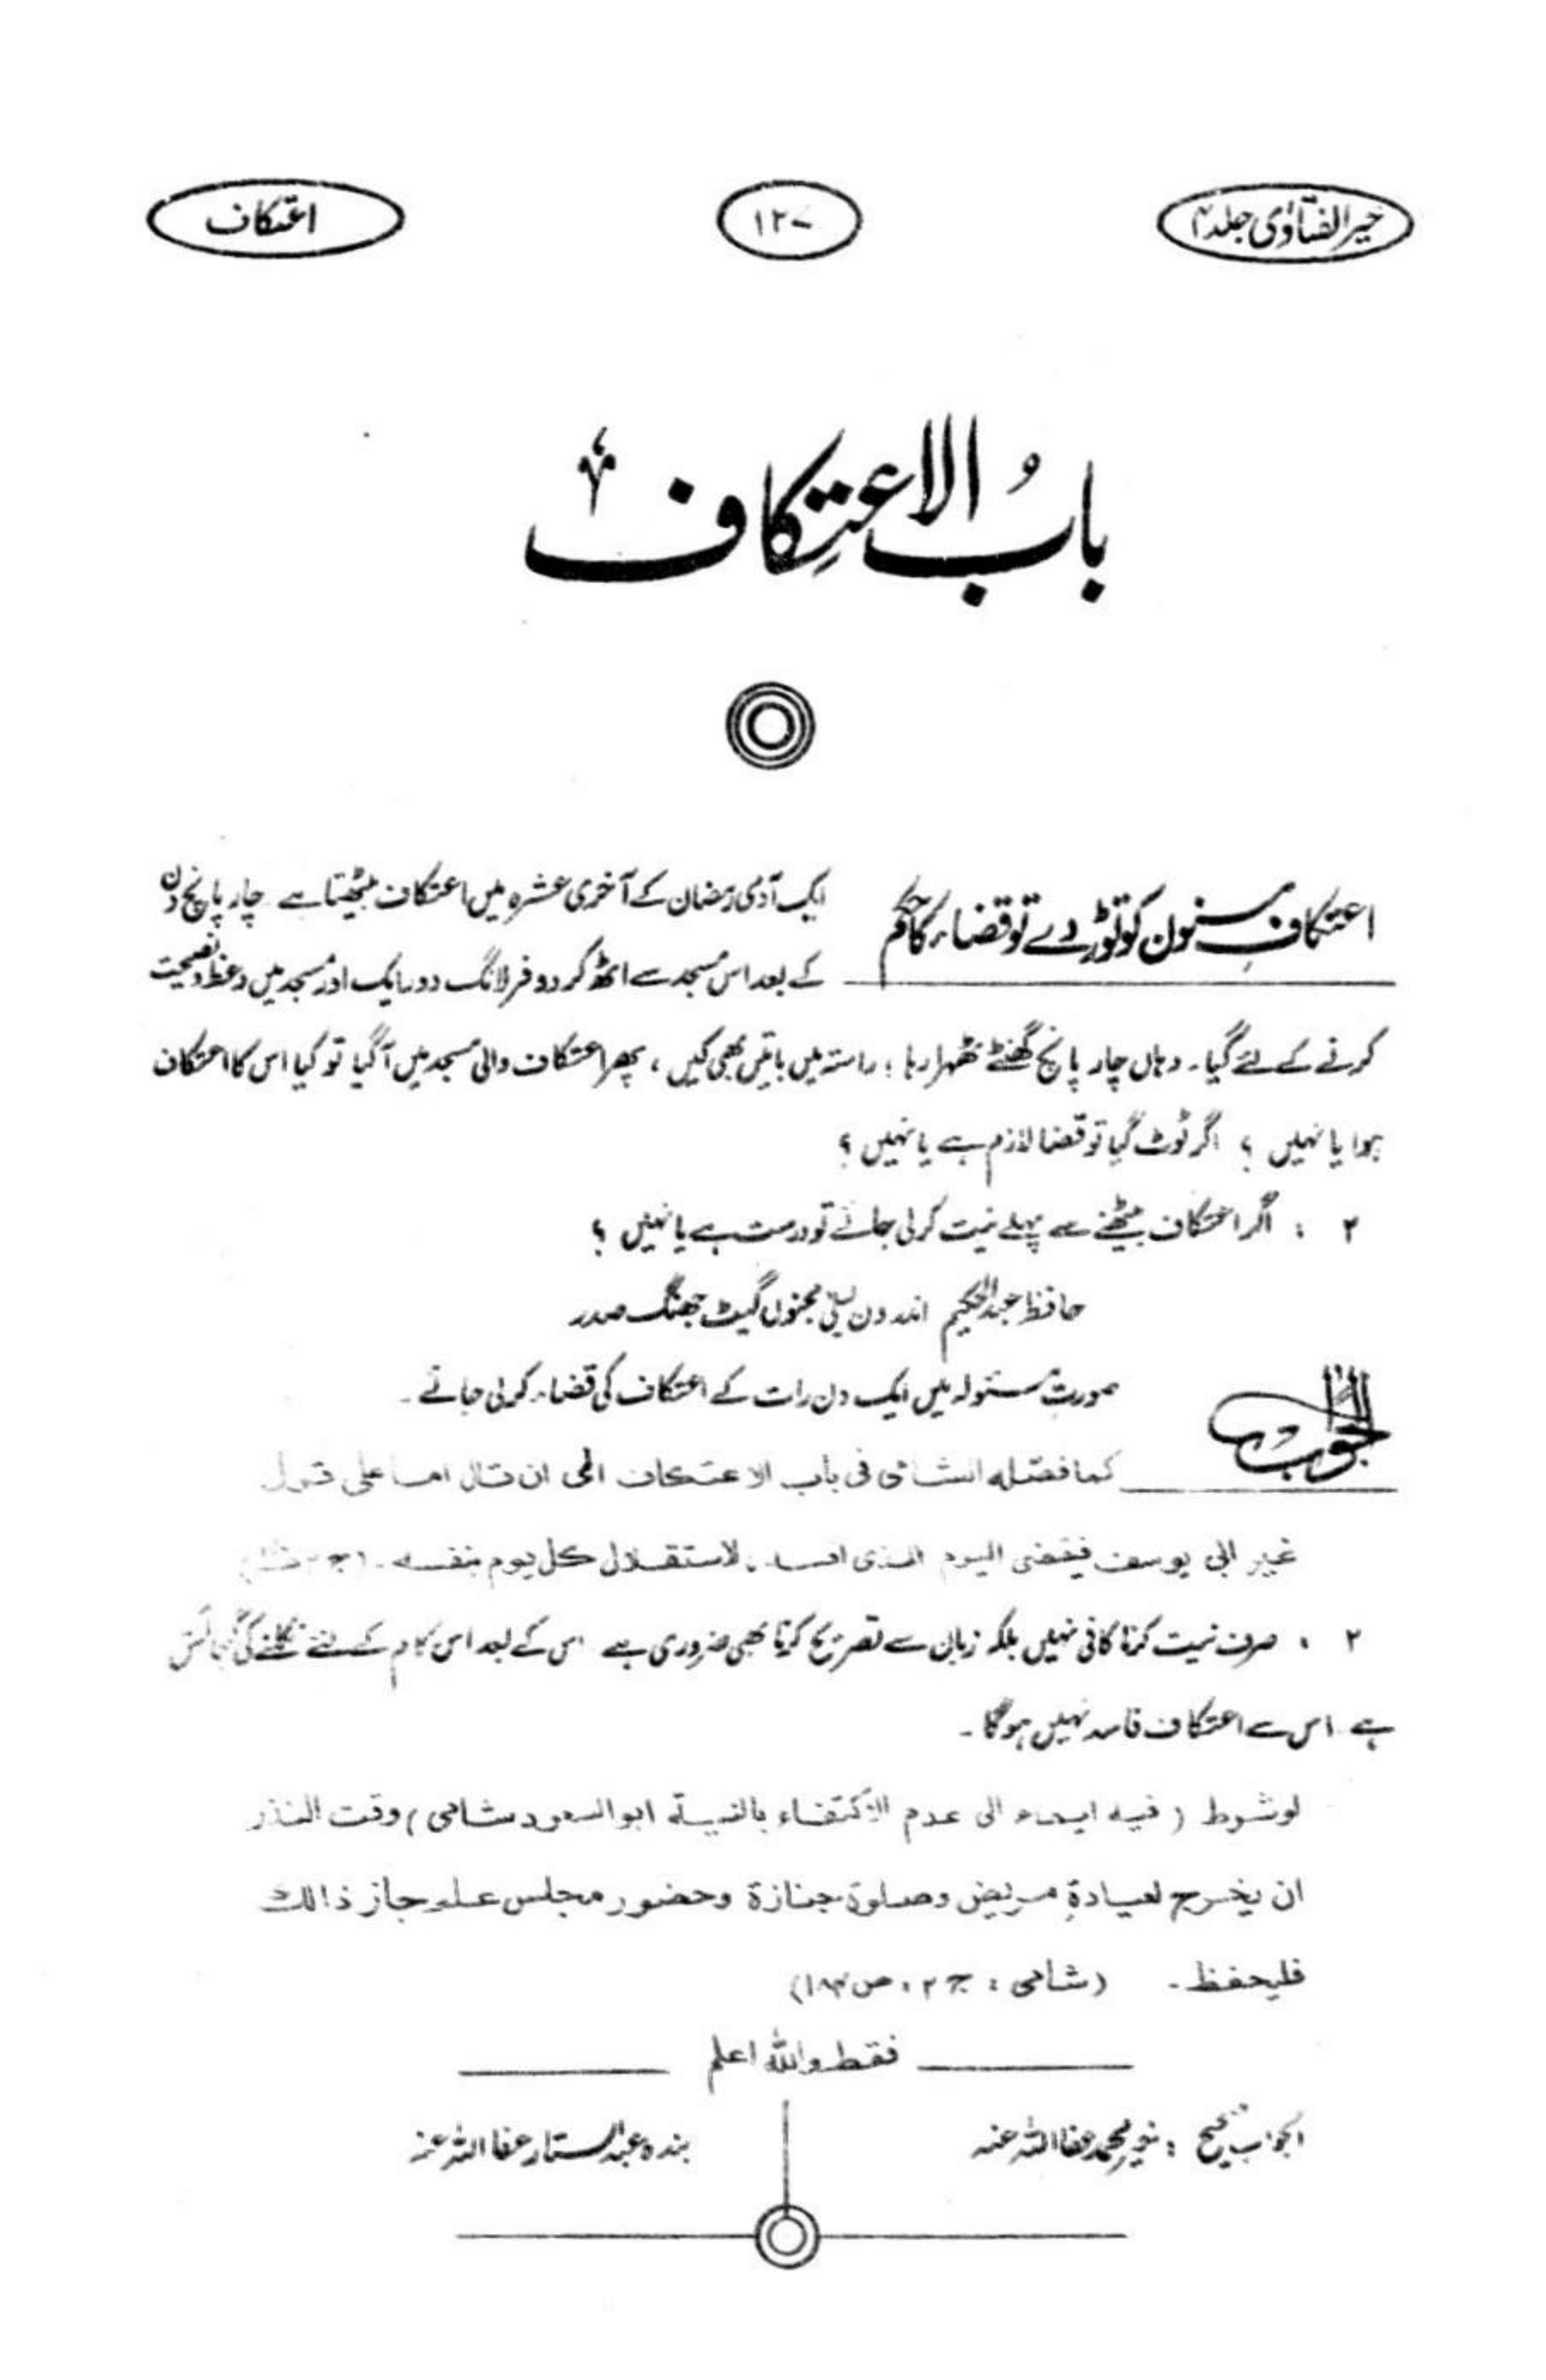 خیر الفتاویٰ جلد ۴
۱۲۷
اعتکاف
بابُ الاعتِکاف
اعتکافِ مسنون کو توڑ دے تو قضاء کا حکم
ایک آدمی رمضان کے آخری عشرہ میں اعتکاف بیٹھتا ہے چار پانچ دن
کے بعد اس مسجد سے اٹھ کر دو فرلانگ دور ایک اور مسجد میں وعظ و نصیحت
کرنے کے لئے گیا۔ وہاں چار پانچ گھنٹے ٹھہرا رہا ؛ راستہ میں باتیں بھی کیں ، پھر اعتکاف والی مسجد میں آگیا تو کیا اس کا اعتکاف
ہوا یا نہیں ؟ اگر ٹوٹ گیا تو قضا لازم ہے یا نہیں ؟
۲ : اگر اعتکاف بیٹھنے سے پہلے نیت کرلی جائے تو درست ہے یا نہیں ؟
حافظ عبدالحکیم اندرون لیلیٰ مجنوں گیٹ جھنگ صدر
الجواب
صورتِ مسئولہ میں ایک دن رات کے اعتکاف کی قضاء کرلی جائے ۔
کما فصّله الشامی فی باب الاعتکاف الی ان قال اما علی قول
غیر ابی یوسف فیقضی الیوم الذی افسده لاستقلال کل یوم بنفسه ۔
۲ : صرف نیت کرنا کافی نہیں بلکہ زبان سے تصریح کرنا بھی ضروری ہے اس کے بعد اس کام کے لئے نکلنے کی گنجائش
ہے اس سے اعتکاف فاسد نہیں ہوگا ۔
لو شرط ( فیه ایماء الی عدم الاکتفاء بالنیة ابو السعود شامی ) وقت النذر
ان یخرج لعیادة مریض وصلوة جنازة وحضور مجلس علم جاز ذالك
فلیحفظ ۔ (شامی : ج ۲ ، ص ۱۸۳)
فقط واللہ اعلم
الجواب صحیح : خیر محمد عفا اللہ عنہ
بندہ عبدالستار عفا اللہ عنہ